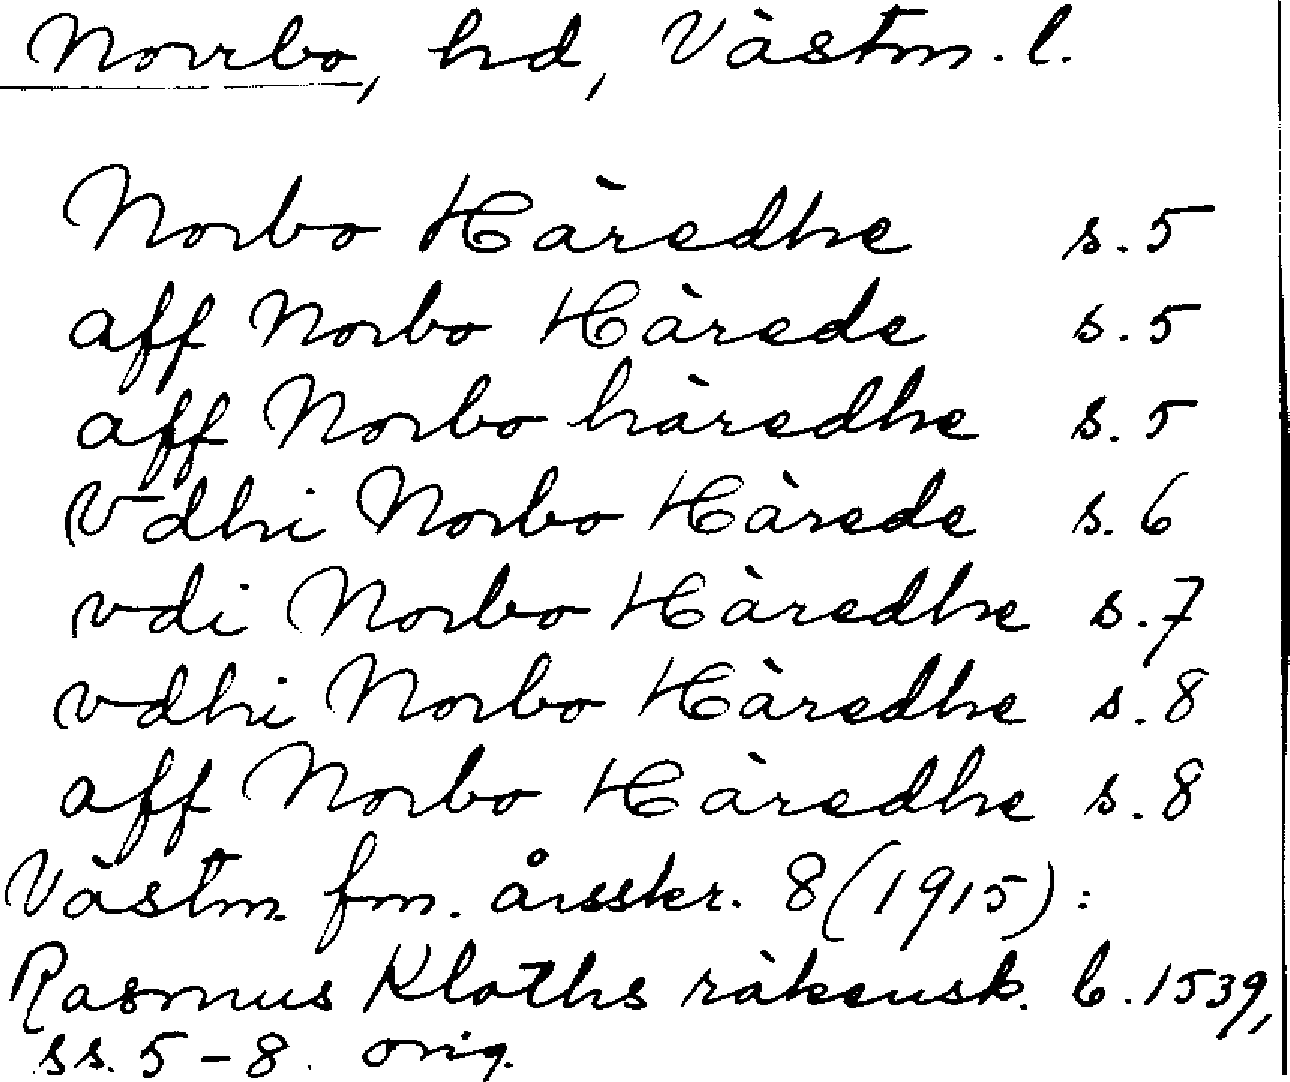 Norrbo, hd, Västm. l.
Norbo Häredhe s. 5
aff Norbo Härede s. 5
aff Norbo häredhe s. 5
Vdhi Norbo Härede s. 6
vdi Norbo Häredhe s. 7
vdhi Norbo Häredhe s. 8
aff Norbo Häredhe s. 8
Västm. fm. årsskr. 8 (1915):
Rasmus Kloths räkensk. b. 1539,
ss. 5-8. orig.